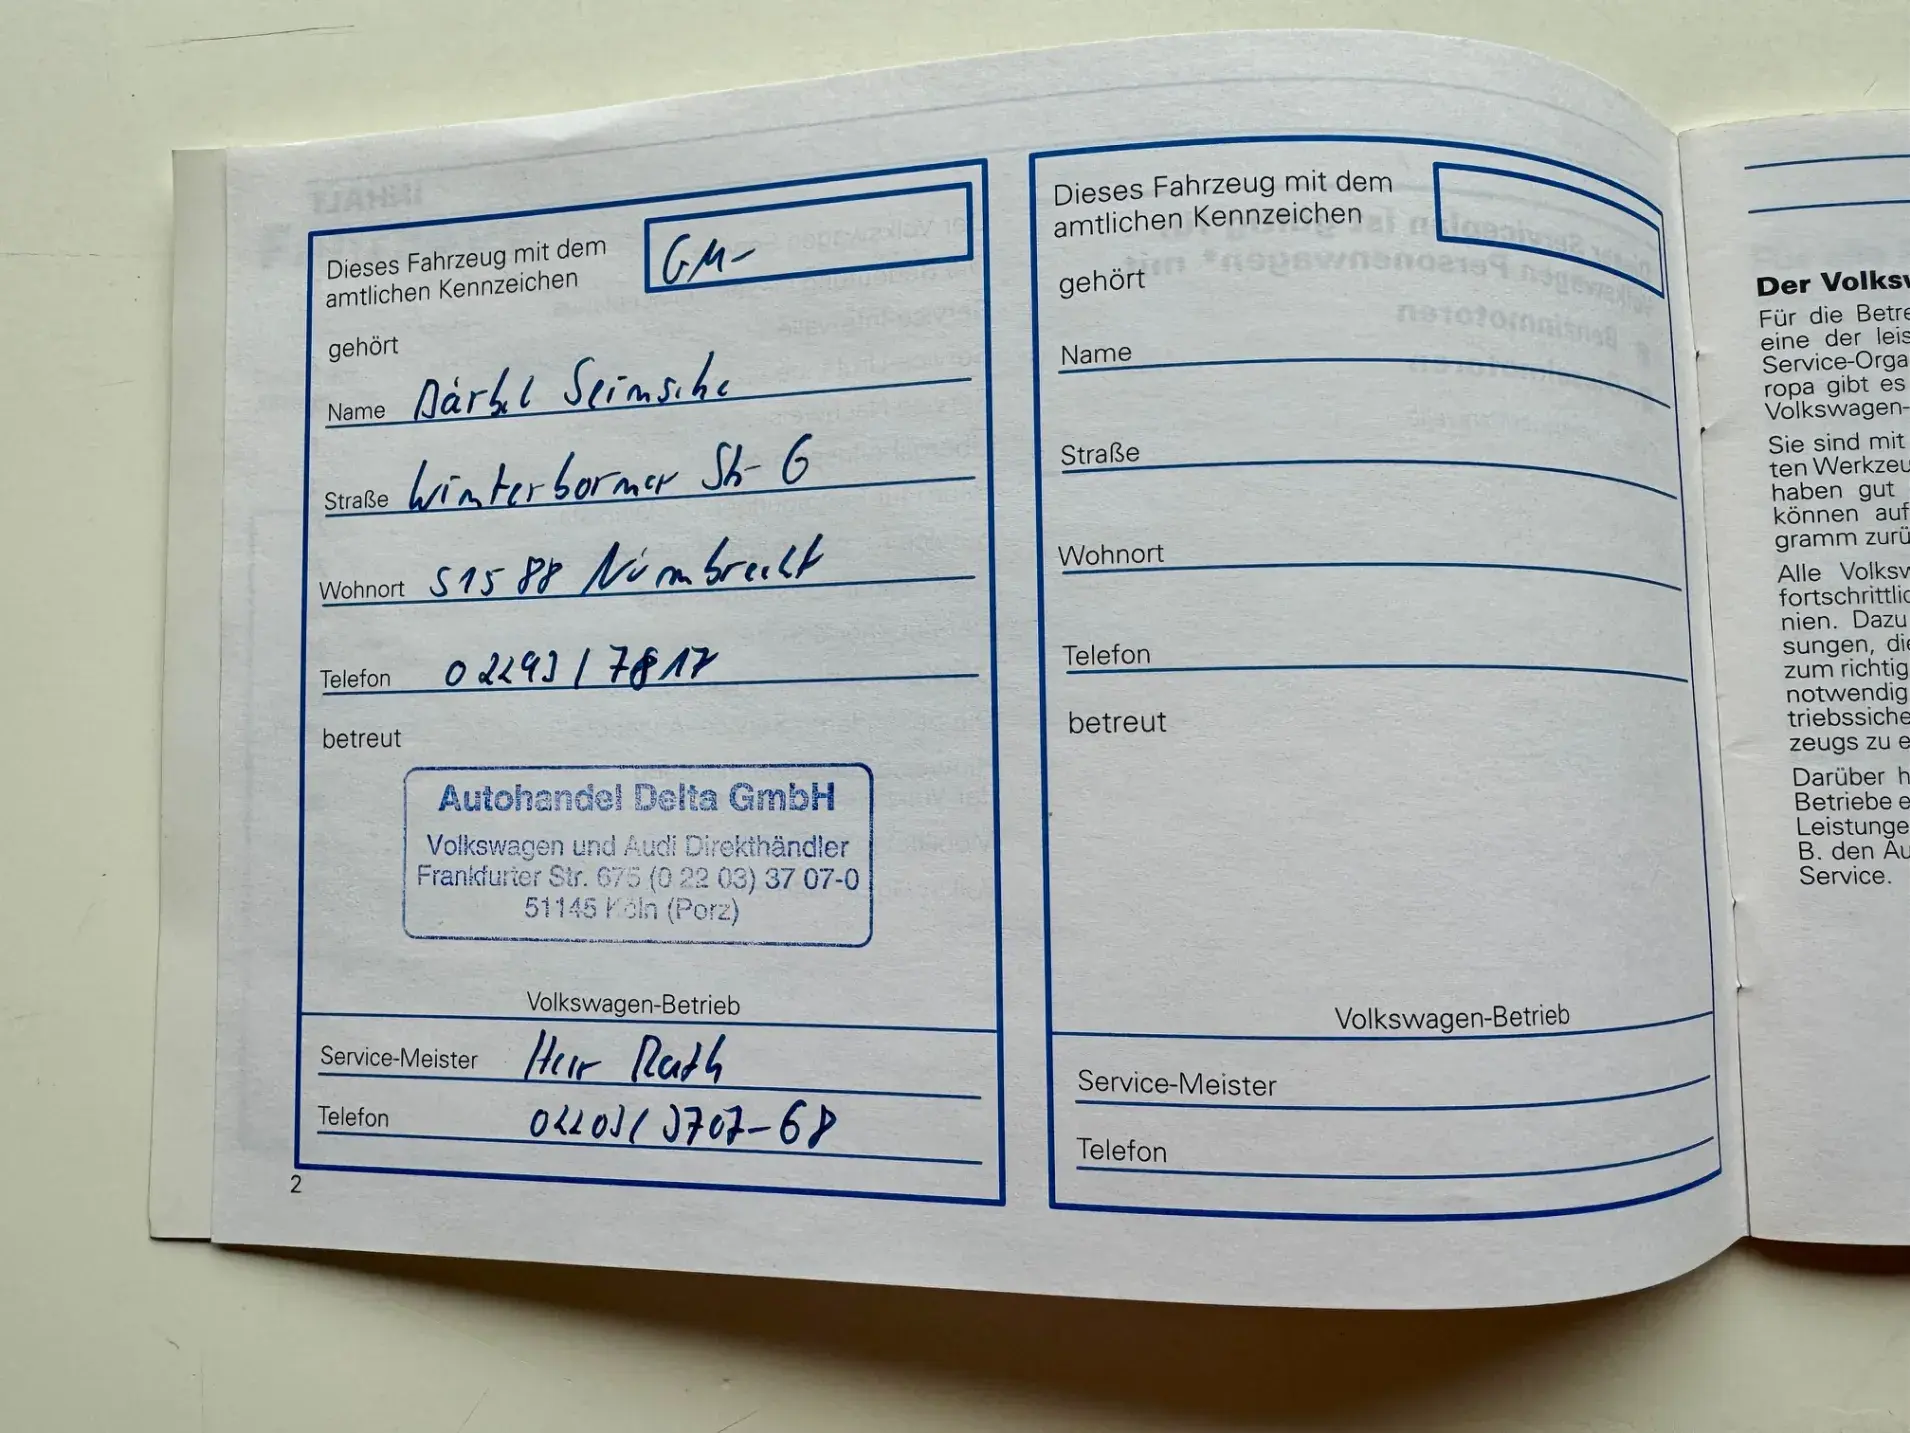 Dieses Fahrzeug mit dem
amtlichen Kennzeichen
GM-
gehört
Name Bärbel
Straße Winterborner Str. 6
Wohnort 51588 Nümbrecht
Telefon 02293 / 7817
betreut
Autohandel Delta GmbH
Volkswagen und Audi Direkthändler
Frankfurter Str. 675 (0 22 03) 37 07-0
51145 Köln (Porz)
Volkswagen-Betrieb
Service-Meister Herr Rath
Telefon 02203 / 3707-68
2
Dieses Fahrzeug mit dem
amtlichen Kennzeichen
gehört
Name
Straße
Wohnort
Telefon
betreut
Volkswagen-Betrieb
Service-Meister
Telefon
Der
Für die
eine der
ropa gibt es
Volkswagen-
Sie sind mit
ten
haben gut
können auf
gramm
Alle
nien. Dazu
sungen, die
zum
notwendig
zeugs zu
Darüber
Betriebe
B. den
Service.